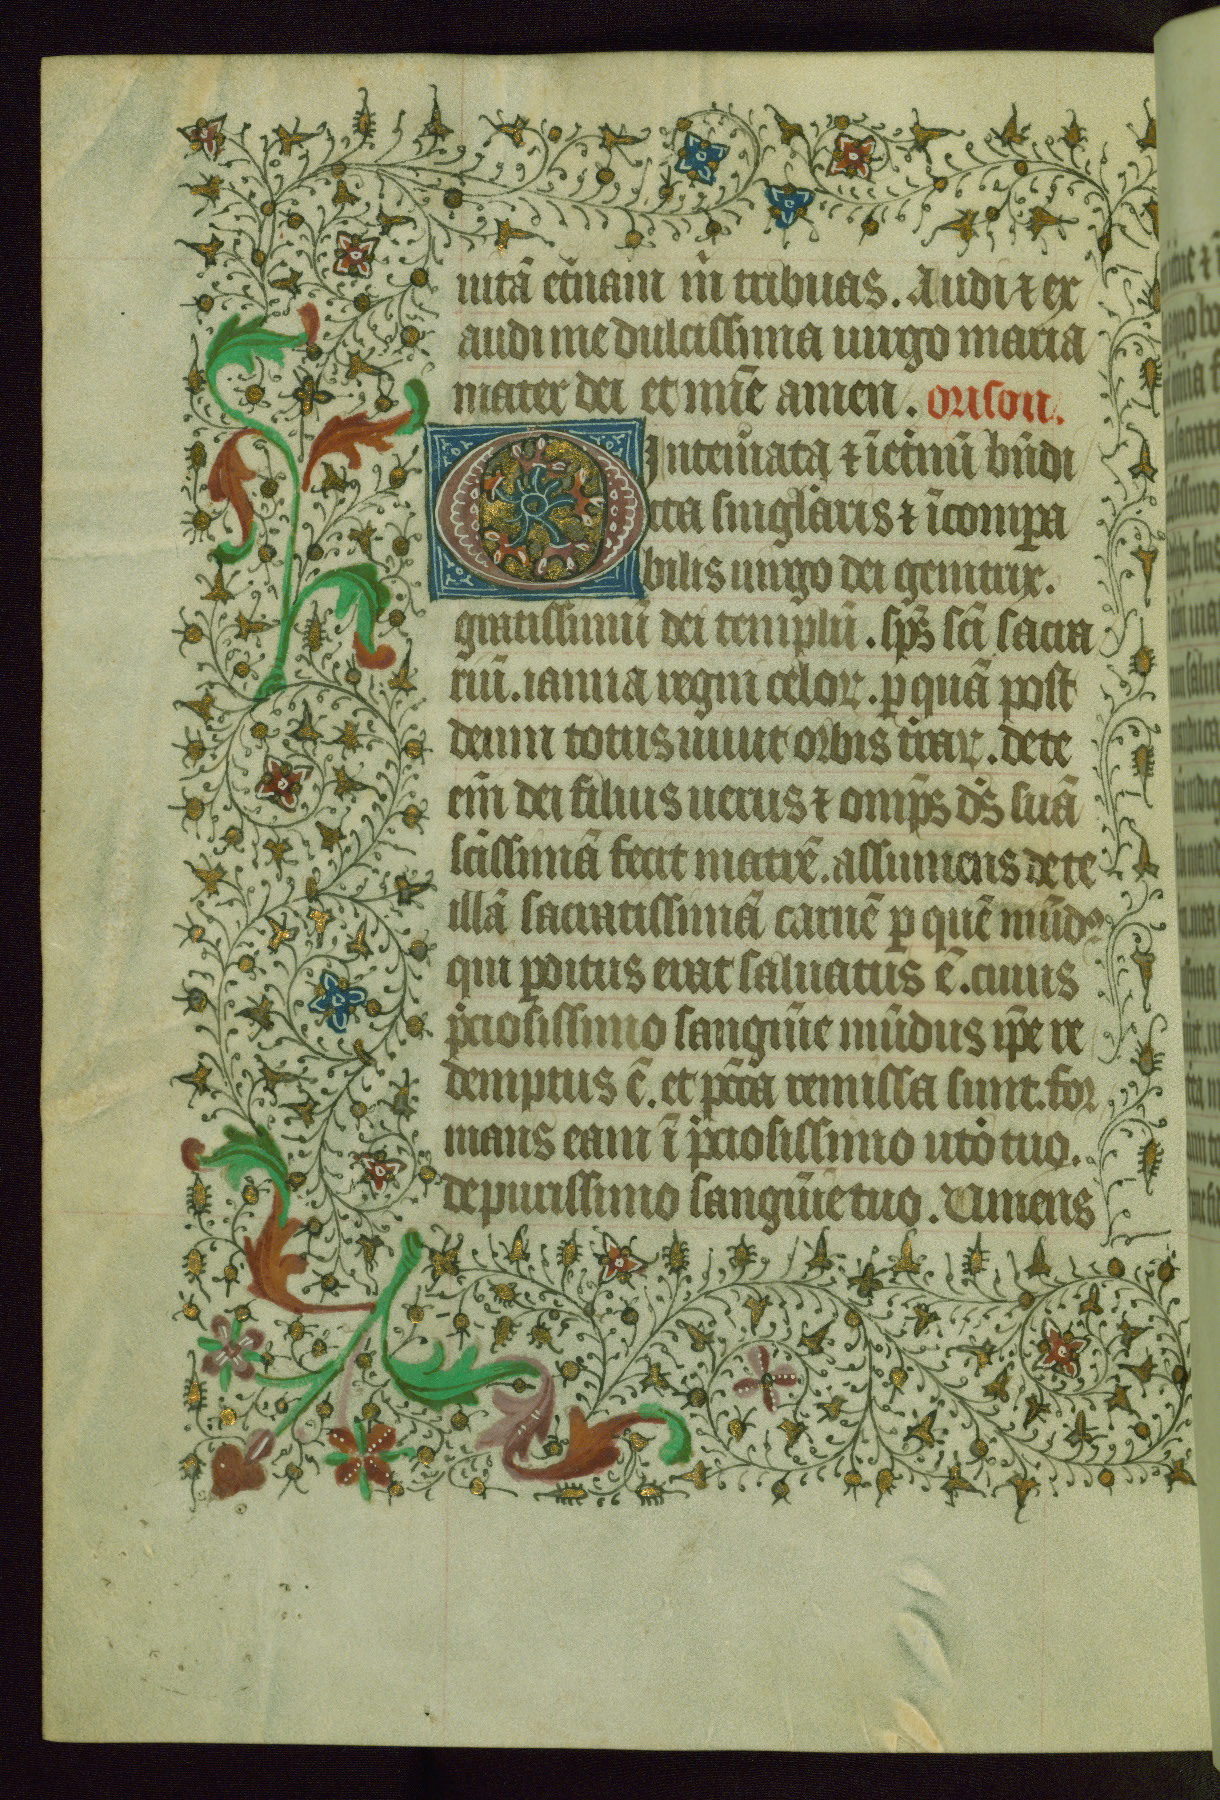 uitā et̄nam m̄ tribuas. Audi ⁊ ex
audi me dulcissima uirgo maria
mater dei et mīe amen. orison.
O Intem̄ata ⁊ īet̄nū bn̄di
cta singl̄aris ⁊ īcompa
bilis uirgo dei genitrix.
gratissimū dei templū. sp̄s sc̄i sacra
riū. ianua regni celoꝝ. ꝑ quā post
deum totus uiuit orbis t̄raꝝ. de te
em̄ dei filius uerus ⁊ omp̄s ds̄ suā
sc̄issimā fecit matrē. assumens de te
illā sacratissimā carnē ꝑ quē mūdꝰ
qui ꝑditus erat saluatus ē. cuius
p̄ciosissimo sangūie mūdus ip̄e re
demptus ē. et pc̄c̄a remissa sunt. for
mans eam ī p̄ciosissimo ut̄o tuo.
de purissimo sangūie tuo. Uiuens